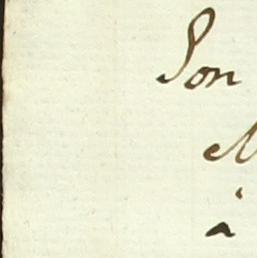 Son
M
à